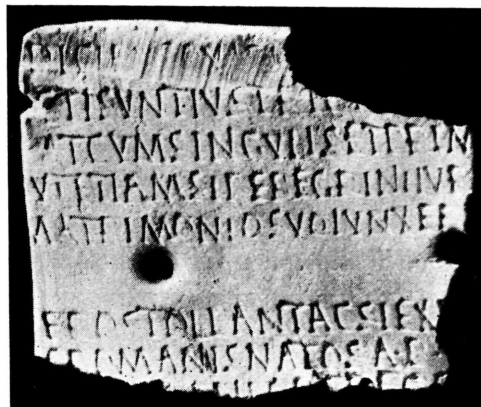 CTI SVNT IVS T
AT CVM SINGVLIS ET PRIM
VT ETIAM SI PEREGRINI IVR
MATRIMONIO SVO IVNXER
EROS TOLLANT AC SI EX
S ROMANIS NATOS A